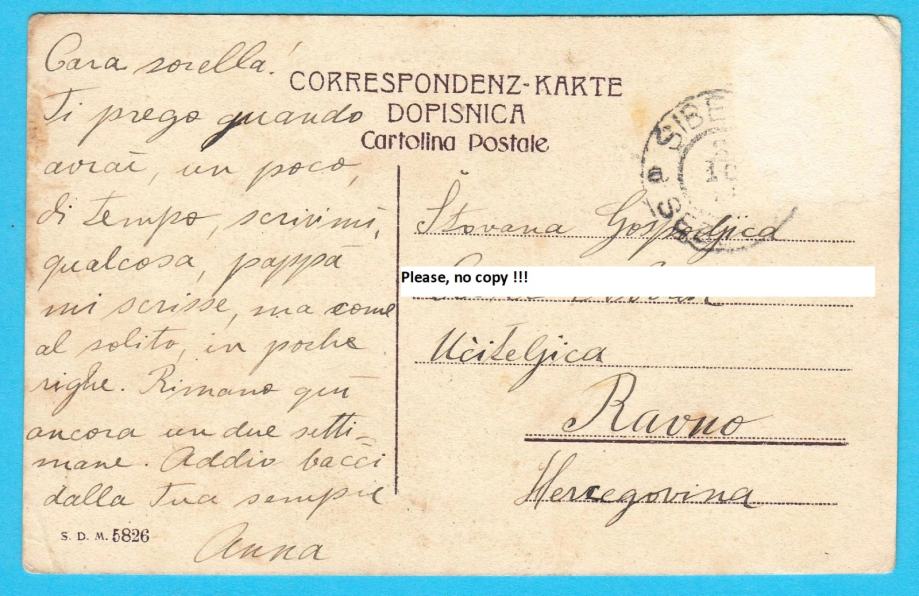 Cara sorella!
Ti prego quando
avrai, un poco,
di tempo, scrivimi,
qualcosa, pappà
mi scrisse, ma come
al solito, in poche
righe. Rimano qui
ancora un due setti-
mane. Addio bacci
dalla tua sempre
Anna
S. D. M. 5826
CORRESPONDENZ-KARTE
DOPISNICA
Cartolina Postale
SIBE
a
Štovana Gospodjica
Please, no copy !!!
Učiteljica
Ravno
Hercegovina